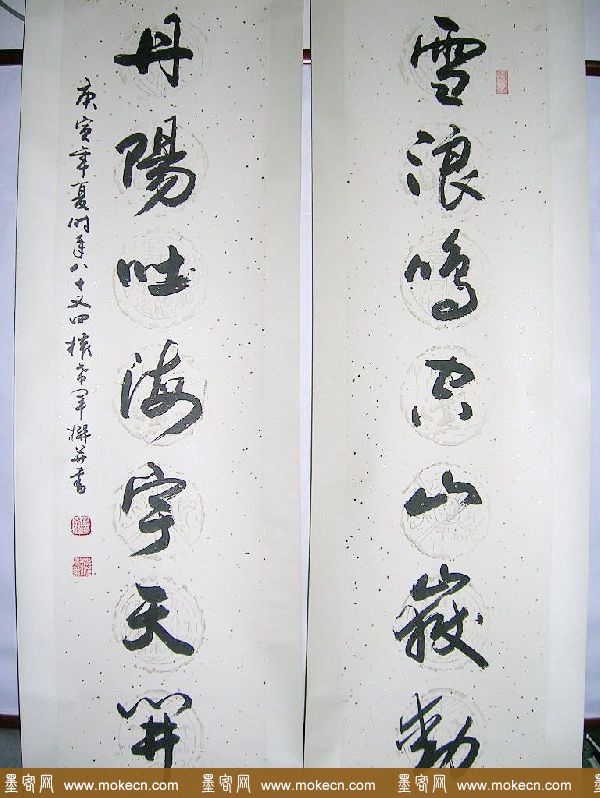 雪浪鳴空山嶽動
丹陽吐海宇天開
庚寅年夏时年八十又四撰并書
墨客网 www.mokecn.com 墨客网 www.mokecn.com 墨客网 www.mokecn.com